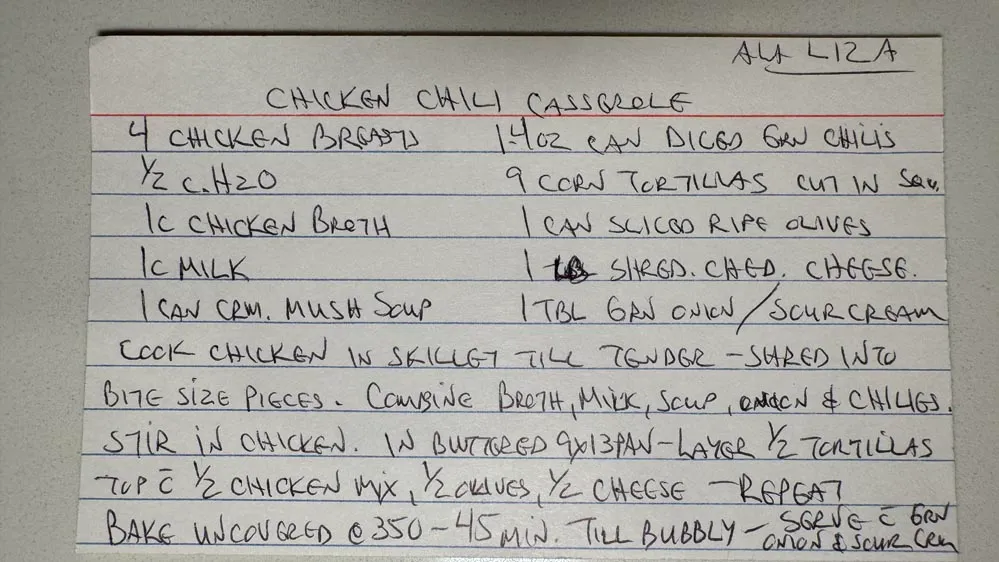 ALA LIZA
CHICKEN CHILI CASSEROLE
4 CHICKEN BREASTS 1·4OZ CAN DICED GRN CHILIS
1/2 C. H2O 9 CORN TORTILLAS CUT IN SQU.
1C CHICKEN BROTH 1 CAN SLICED RIPE OLIVES
1C MILK 1 LB SHRED. CHED. CHEESE.
1 CAN CRM. MUSH SOUP 1 TBL GRN ONION / SOUR CREAM
COOK CHICKEN IN SKILLET TILL TENDER - SHRED INTO
BITE SIZE PIECES. COMBINE BROTH, MILK, SOUP, ONION & CHILIES.
STIR IN CHICKEN. IN BUTTERED 9X13 PAN - LAYER 1/2 TORTILLAS
TOP C̄ 1/2 CHICKEN MIX, 1/2 OLIVES, 1/2 CHEESE - REPEAT
BAKE UNCOVERED @ 350 - 45 MIN. TILL BUBBLY - SERVE C̄ GRN
ONION & SOUR CRM